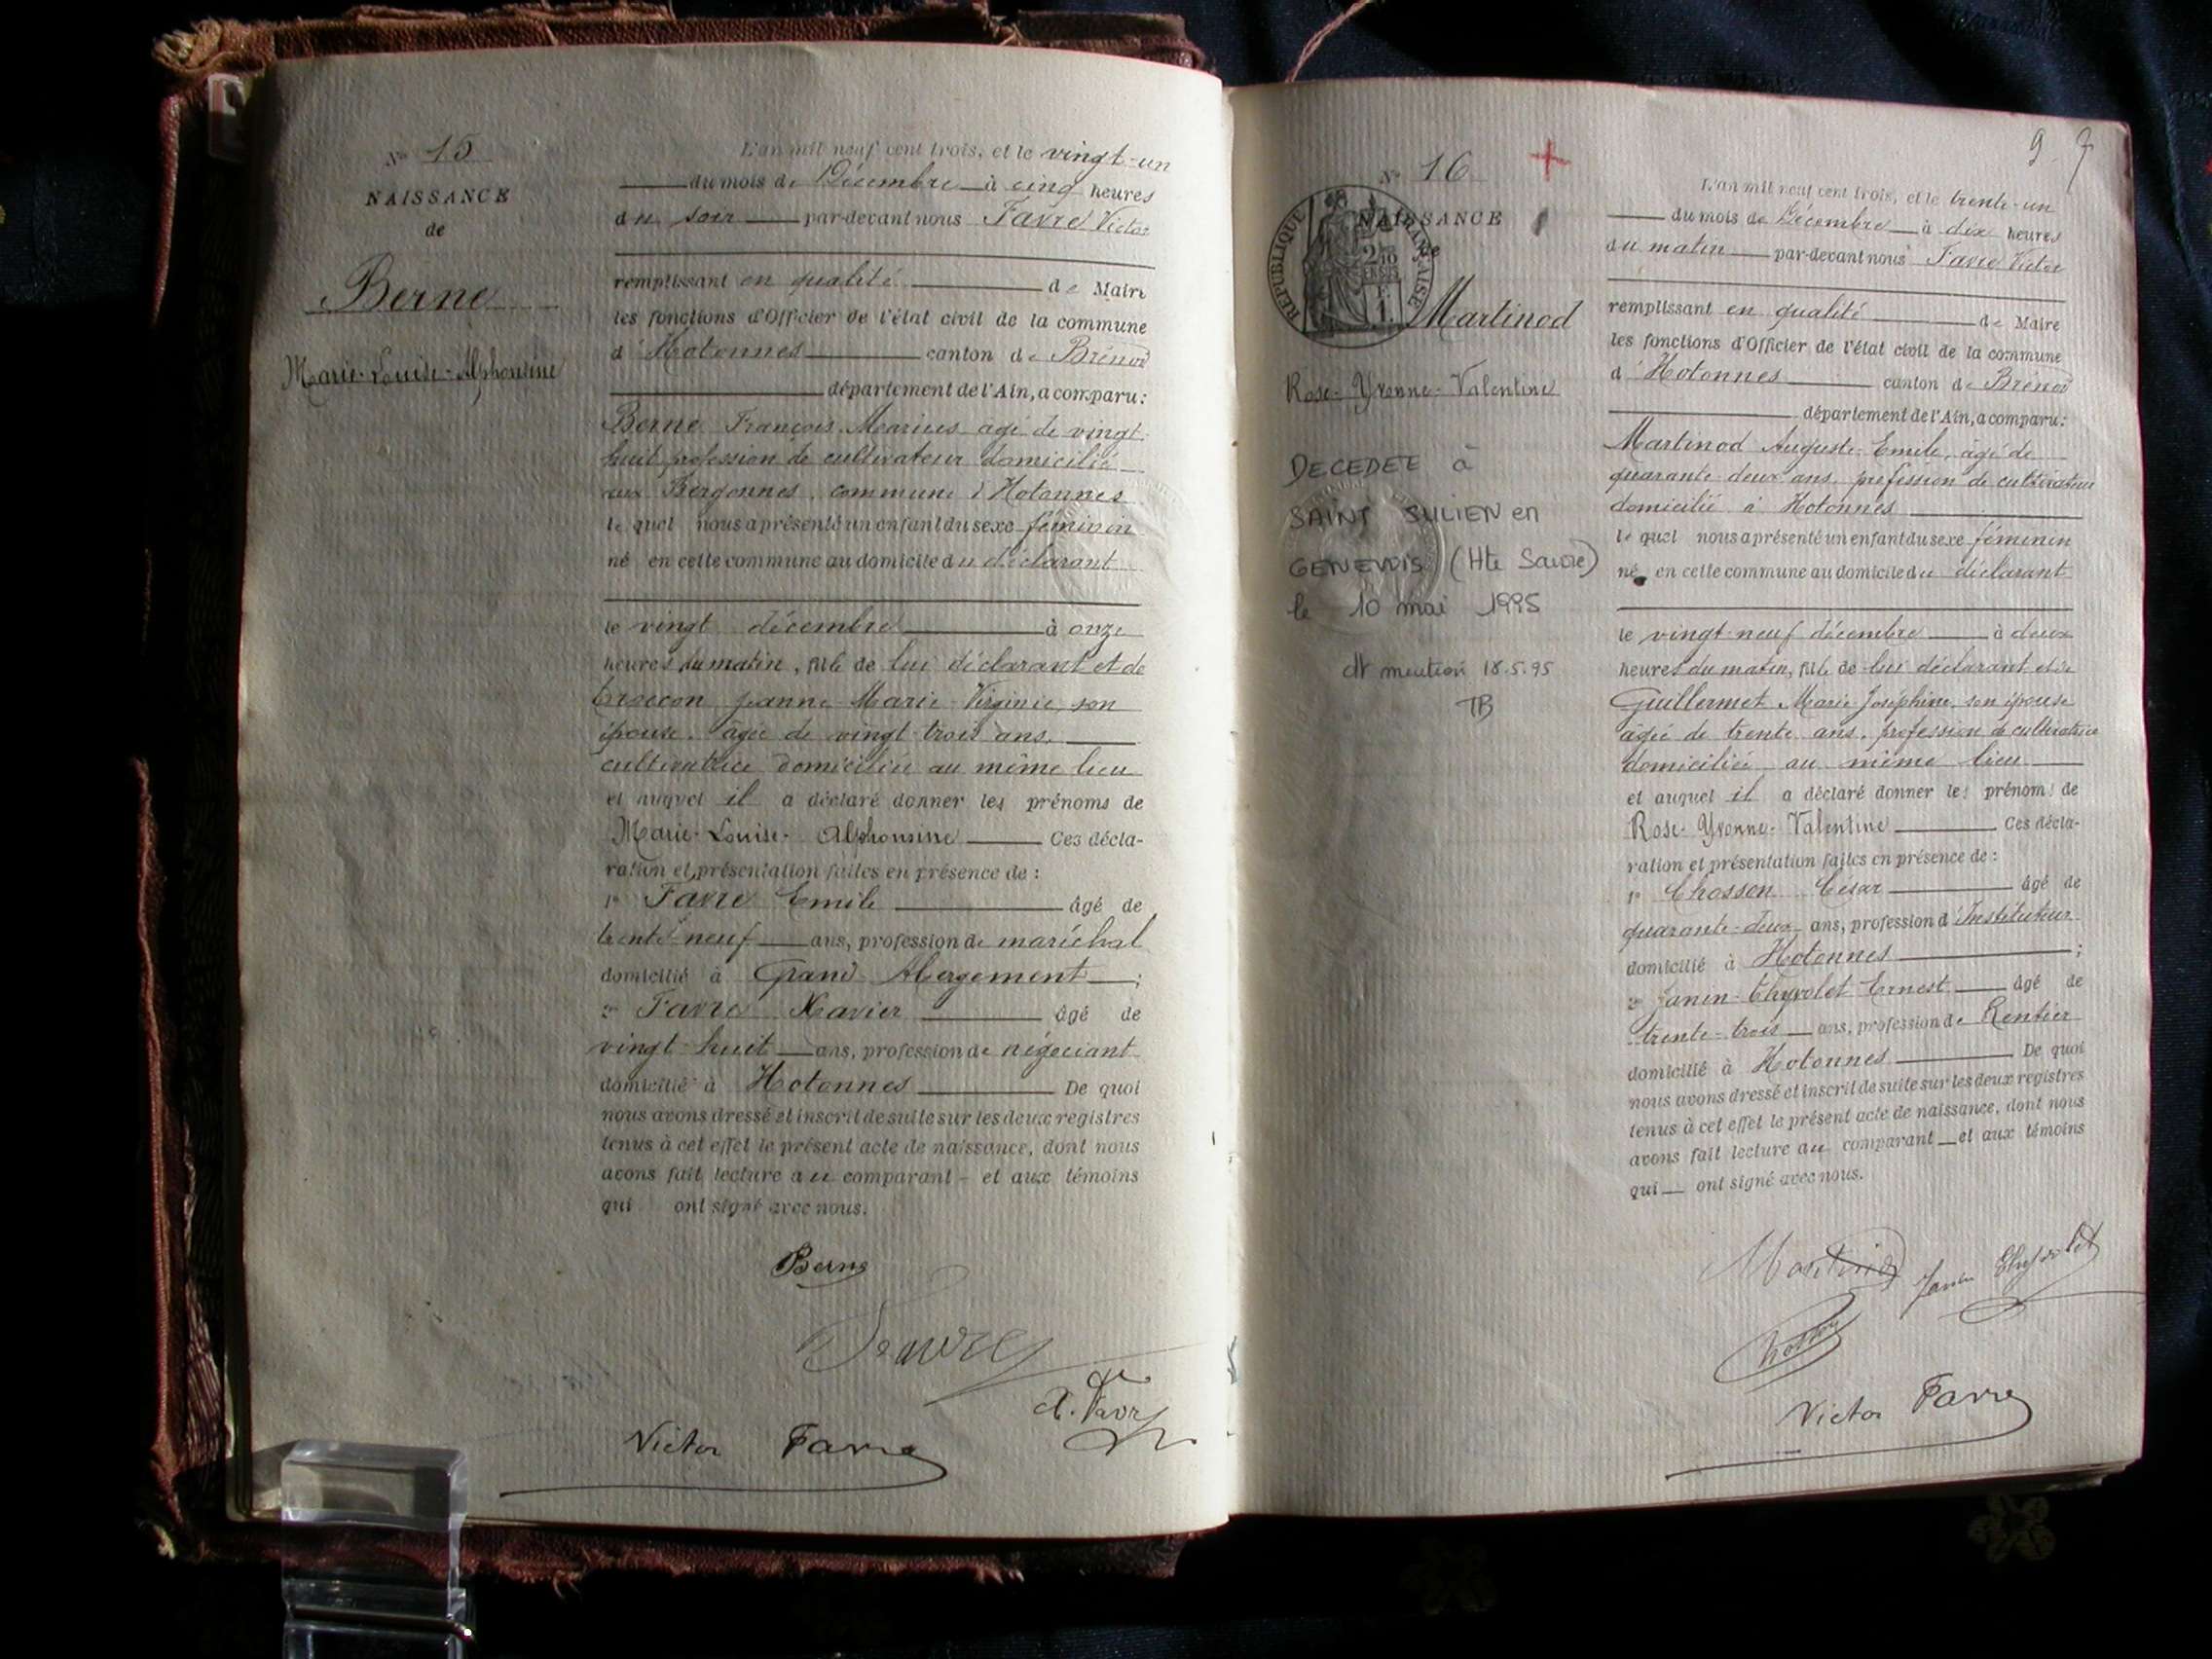 N° 15
NAISSANCE
de
Berne
Marie-Louise-Alphonsine
L'an mil neuf cent trois, et le vingt-un
du mois de Décembre à cinq heures
du soir par-devant nous Favre Victor
remplissant en qualité de Maire
les fonctions d'Officier de l'état civil de la commune
d'Hotonnes canton de Brénod
département de l'Ain, a comparu:
Berne François Marius âgé de vingt
huit profession de cultivateur domicilié
aux Bergonnes, commune d'Hotonnes
lequel nous a présenté un enfant du sexe féminin
né en cette commune au domicile du déclarant
le vingt décembre à onze
heures du matin, fille de lui déclarant et de
Jeanne-Marie Virginie, son
épouse. âgée de vingt trois ans.
cultivatrice domiciliée au même lieu
et auquel il a déclaré donner les prénoms de
Marie-Louise-Alphonsine Ces décla-
ration et présentation faites en présence de :
1° Favre Emile âgé de
trente neuf ans, profession de maréchal
domicilié à Grand Abergement ;
2° Favre Xavier âgé de
vingt huit ans, profession de négociant
domicilié à Hotonnes De quoi
nous avons dressé et inscrit de suite sur les deux registres
tenus à cet effet le présent acte de naissance, dont nous
avons fait lecture au comparant - et aux témoins
qui ont signé avec nous.
Berne
Favre
X. Favre
Victor Favre
9 7
N° 16 +
NAISSANCE
de
REPUBLIQUE FRANÇAISE
Martinod
Rose-Yvonne-Valentine
DECEDEE à
SAINT JULIEN en
GENEVOIS (Hte Savoie)
le 10 mai 1995
dt mention 18.5.95
TB
L'an mil neuf cent trois, et le trente-un
du mois de Décembre à dix heures
du matin par-devant nous Favre Victor
remplissant en qualité de Maire
les fonctions d'Officier de l'état civil de la commune
d'Hotonnes canton de Brénod
département de l'Ain, a comparu:
Martinod Auguste-Emile, âgé de
quarante deux ans profession de cultivateur
domicilié à Hotonnes
lequel nous a présenté un enfant du sexe féminin
né en cette commune au domicile du déclarant
le vingt-neuf décembre à deux
heures du matin, fille de lui déclarant et de
Guillermet Marie Joséphine, son épouse
âgée de trente ans. profession de cultivatrice
domiciliée au même lieu
et auquel il a déclaré donner les prénoms de
Rose-Yvonne-Valentine Ces décla-
ration et présentation faites en présence de :
1° Chosson César âgé de
quarante-deux ans, profession d'Instituteur
domicilié à Hotonnes ;
2° Janin-Thyvolet Ernest âgé de
trente-trois ans, profession de Rentier
domicilié à Hotonnes De quoi
nous avons dressé et inscrit de suite sur les deux registres
tenus à cet effet le présent acte de naissance, dont nous
avons fait lecture au comparant et aux témoins
qui ont signé avec nous.
Martinod Janin Thyvolet
Victor Favre